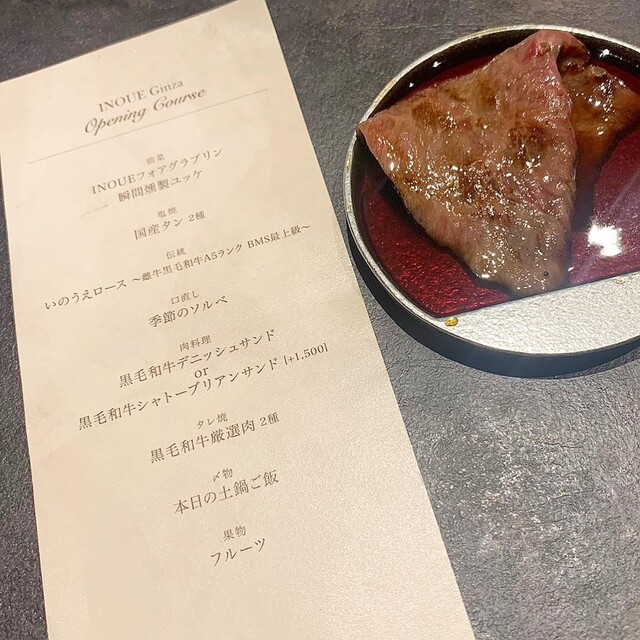 INOUE Ginza
Opening Course
前菜
INOUEフォアグラプリン
瞬間燻製ユッケ
塩焼
国産タン 2種
伝統
いのうえロース 〜雌牛黒毛和牛A5ランク BMS最上級〜
口直し
季節のソルベ
肉料理
黒毛和牛デニッシュサンド
or
黒毛和牛シャトーブリアンサンド [+1,500]
タレ焼
黒毛和牛厳選肉 2種
〆物
本日の土鍋ご飯
果物
フルーツ